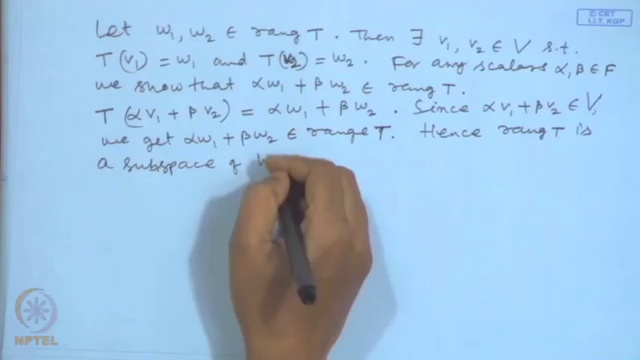 © CET
I.I.T. KGP
Let w₁, w₂ ∈ rang T. Then ∃ v₁, v₂ ∈ V s.t.
T(v₁) = w₁ and T(v₂) = w₂. For any scalars α, β ∈ F
we show that αw₁ + βw₂ ∈ rang T.
T(αv₁ + βv₂) = αw₁ + βw₂. Since αv₁ + βv₂ ∈ V,
we get αw₁ + βw₂ ∈ range T. Hence rang T is
a subspace of
NPTEL